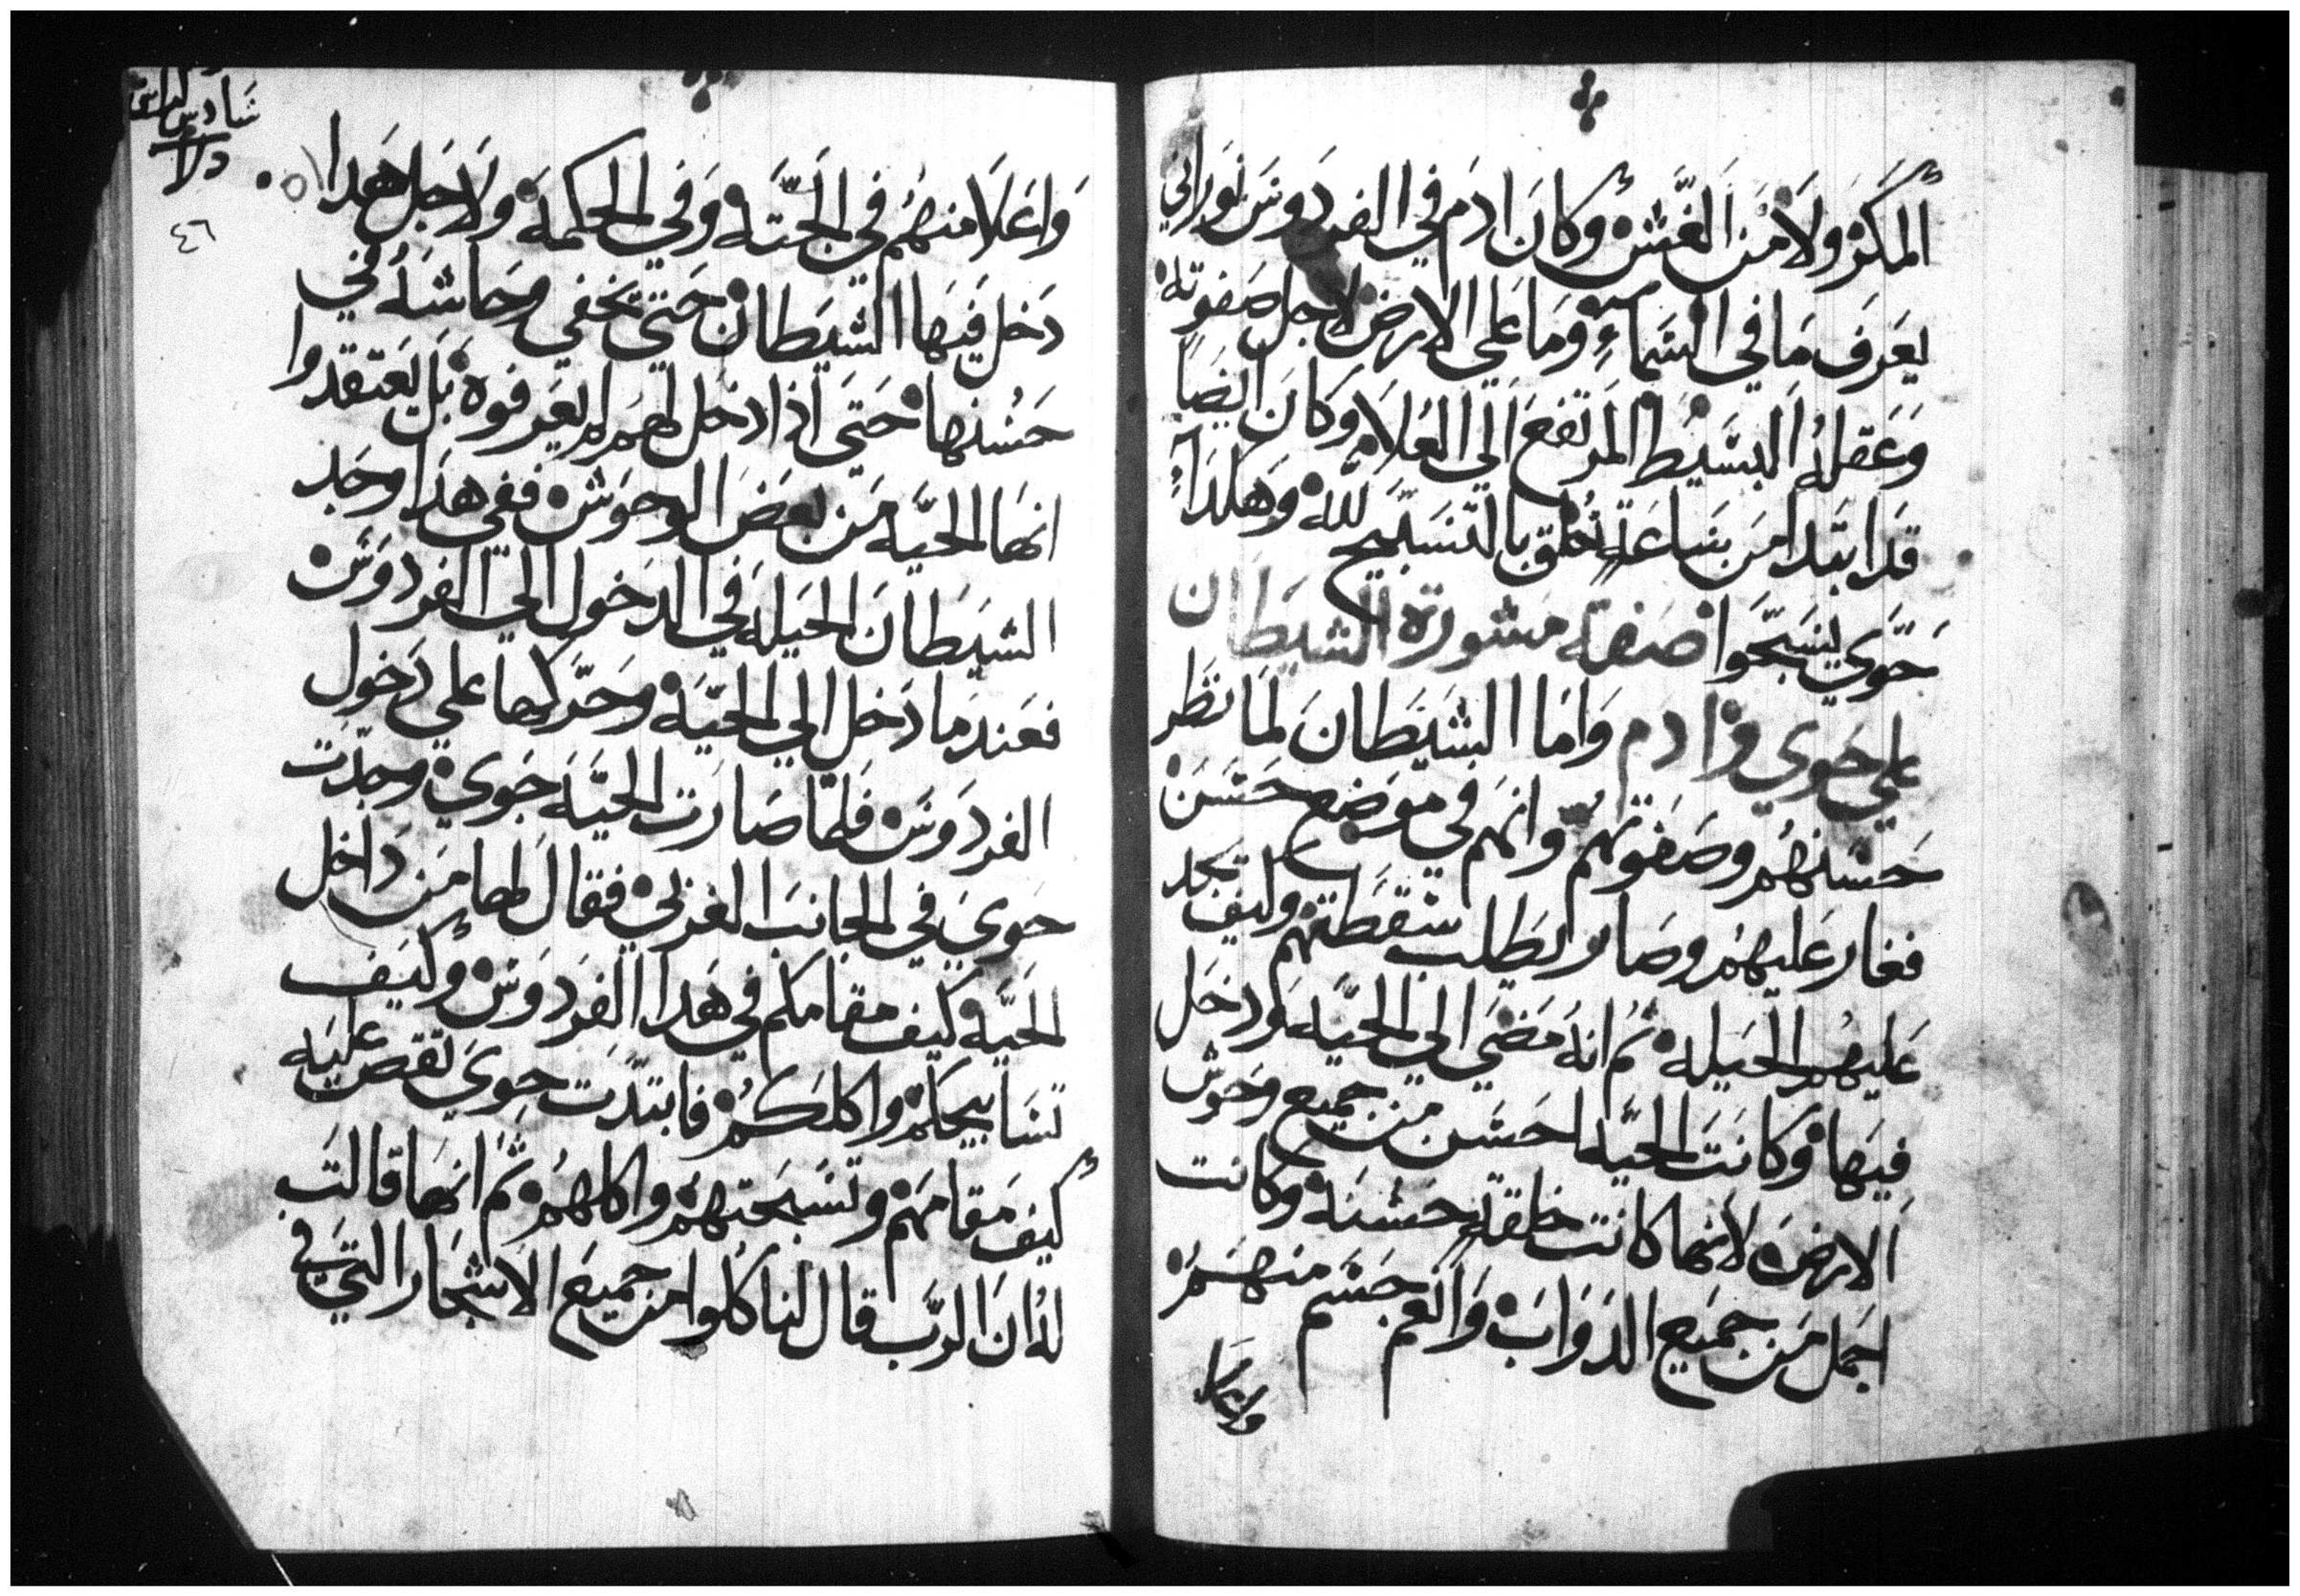 المكر ولا من الغش وكان ادم في الفردوس نوراني
يعرف ما في السماء وما علي الارض لاجل صفوته
وعقله البسيط المرتفع الي العلا وكان ايضا
قد ابتدا من ساعة خلق بالتسبيح لله وهكذا
حوي يسبحوا صفة مشورة الشيطان
علي حوي وادم واما الشيطان لما نظر
حسنهم وصفوتهم وانهم في موضع حسن
فغار عليهم وصار يطلب سقطتهم وكيف يجد
عليهم الحيله ثم انه مضي الي الحيه ودخل
فيها وكانت الحيه احسن من جميع وحوش
الارض لانها كانت خلقة حسنه وكانت
اجمل من جميع الدواب وانعم جسم منهم
واعلا
سادس
دلا
٤٦
واعلا منهم في الجته وفي الحكمه ولاجل هدا
دخل فيها الشيطان حتي تخفي وحاشه في
حسنها حتي اذا دخل لهم لم يعرفوه بل يعتقدوا
انها الحيه من بعض الوحوش ففي هدا وجد
الشيطان الحيله في الدخول الي الفردوس
فعندما دخل الي الحيه وحركها علي دخول
الفردوس فلما صارت الحيه جوي وجدت
حوي في الجانب الغربي فقال لها من داخل
الحيه كيف مقامكم في هدا الفردوس وكيف
تسابيحكم واكلكم فابتدت حوي تقص عليه
كيف مقامهم وتسبحتهم واكلهم ثم انها قالت
له ان الرب قال لنا كلوا من جميع الاشجار التي في